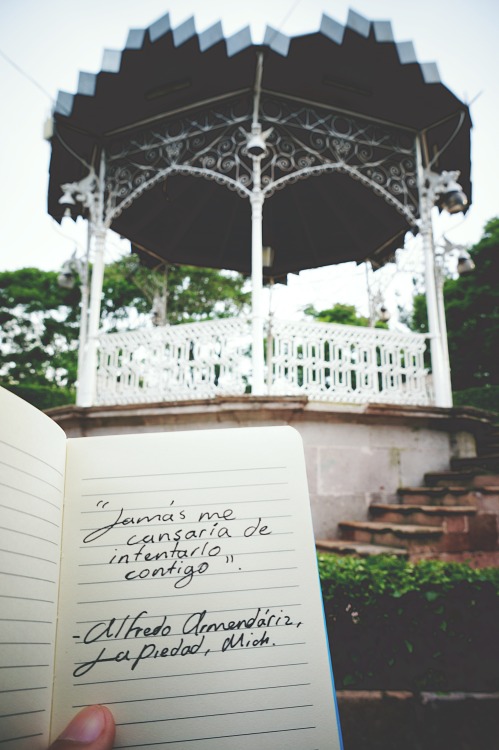 "Jamás me
cansaría de
intentarlo
contigo".
-Alfredo Armendáriz,
La Piedad, Mich.